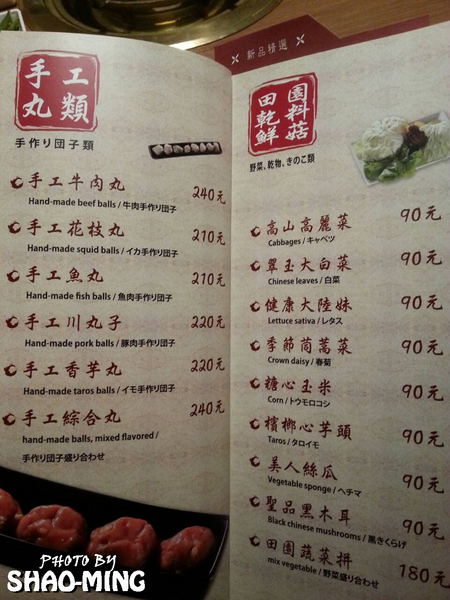 手工
丸類
手作り団子類
手工牛肉丸 240元
Hand-made beef balls / 牛肉手作り団子
手工花枝丸 210元
Hand-made squid balls / イカ手作り団子
手工魚丸 210元
Hand-made fish balls / 魚肉手作り団子
手工川丸子 220元
Hand-made pork balls / 豚肉手作り団子
手工香芋丸 220元
Hand-made taros balls / イモ手作り団子
手工綜合丸 240元
hand-made balls, mixed flavored /
手作り団子盛り合わせ
新品精選
田園
乾料
鮮菇
野菜、乾物、きのこ類
高山高麗菜 90元
Cabbages / キャベツ
翠玉大白菜 90元
Chinese leaves / 白菜
健康大陸妹 90元
Lettuce sativa / レタス
季節茼蒿菜 90元
Crown daisy / 春菊
糖心玉米 90元
Corn / トウモロコシ
檳榔心芋頭 90元
Taros / タロイモ
美人絲瓜 90元
Vegetable sponge / ヘチマ
聖品黑木耳 90元
Black chinese mushrooms / 黒きくらげ
田園蔬菜拼 180元
mix vegetable / 野菜盛り合わせ
PHOTO BY
SHAO-MING